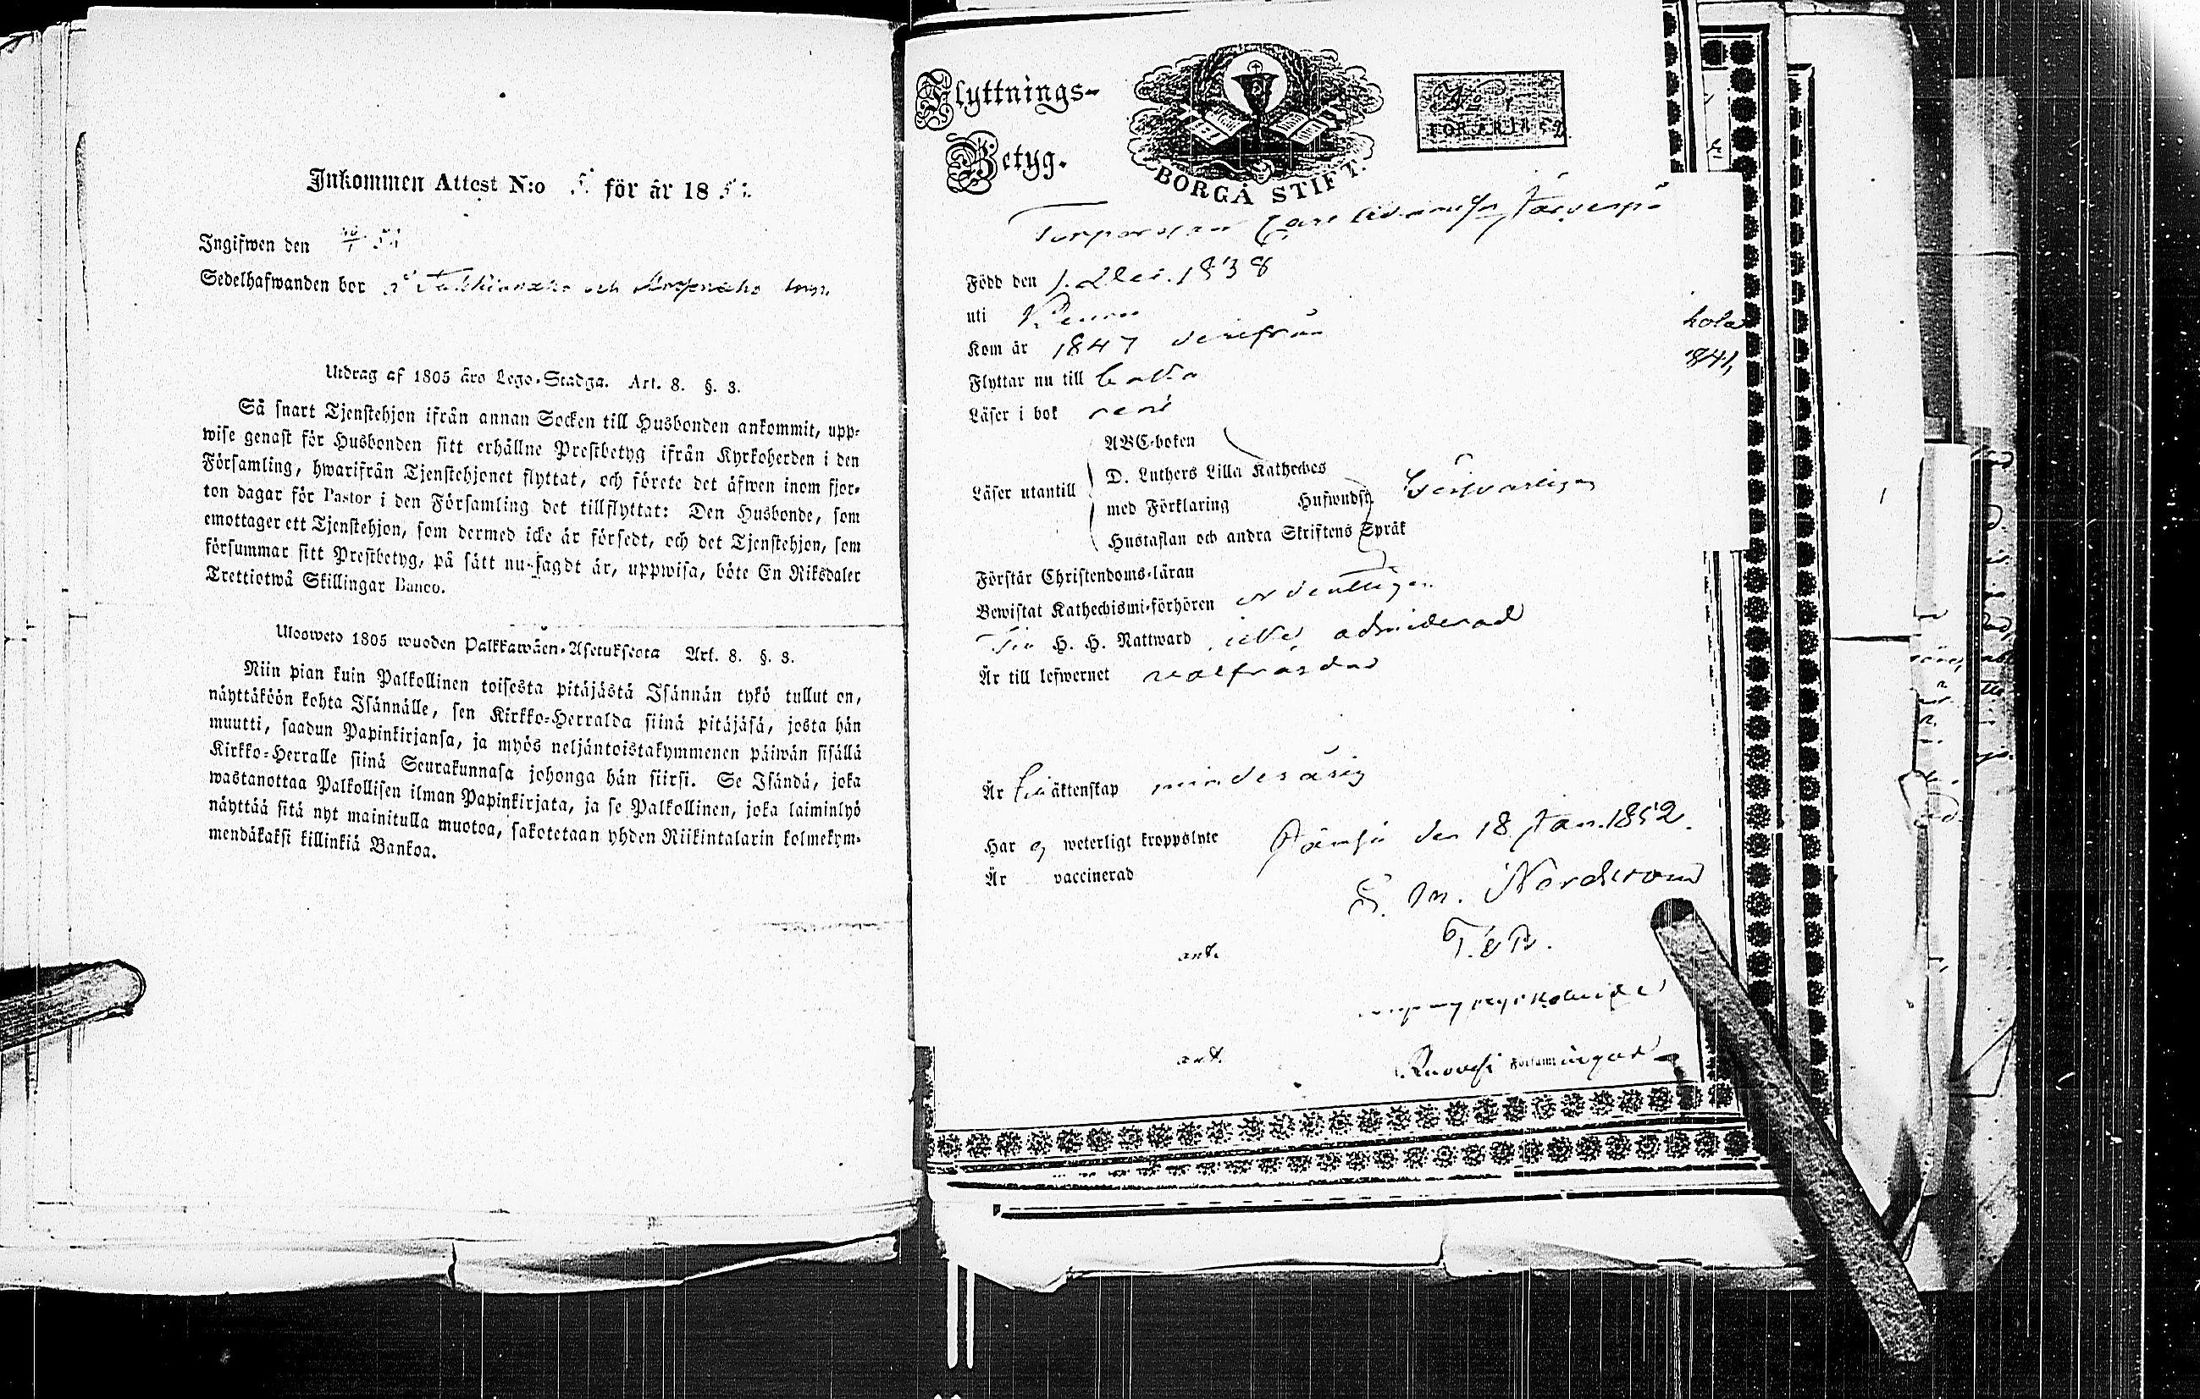 Inkommen Attest N:o 5 för år 18
Ingifwen den
Sedelhafwanden bor å och
Utdrag af 1805 års Lego-Stadga. Art. 8. §. 3.
Så snart Tjenstehjon ifrån annan Socken till Husbonden ankommit, upp-
wise genast för Husbonden sitt erhållne Prestbetyg ifrån Kyrkoherden i den
Församling, hwarifrån Tjenstehjonet flyttat, och förete det äfwen inom fjor-
ton dagar för Pastor i den Församling det tillflyttat: Den Husbonde, som
emottager ett Tjenstehjon, som dermed icke är försedt, och det Tjenstehjon, som
försummar sitt Prestbetyg, på sätt nu sagdt är, uppwisa, böte En Riksdaler
Trettiotwå Skillingar Banco.
Ulosweto 1805 wuoden Palkkawäen-Asetuksesta Art. 8. §. 3.
Niin pian kuin Palkollinen toisesta pitäjästä Isännän tykö tullut on,
näyttäköön kohta Isännälle, sen Kirkko-Herralda siinä pitäjäsä, josta hän
muutti, saadun Papinkirjansa, ja myös neljäntoistakymmenen päiwän sisällä
Kirkko-Herralle siinä Seurakunnasa johonga hän siirsi. Se Isändä, joka
wastanottaa Palkollisen ilman Papinkirjata, ja se Palkollinen, joka laiminlyö
näyttää sitä nyt mainitulla muotoa, sakotetaan yhden Riikintalarin kolmekym-
mendäkaksi killinkiä Bankoa.
Flyttnings-
Betyg.
BORGÅ STIFT.
FÖR ÅR 1852.
Torparson Carl
Född den 1. Dec. 1838
uti
Kom år 1847 derifrån
Flyttar nu till
Läser i bok rent
ABC-boken
D. Luthers Lilla Kateches
Läser utantill med Förklaring Hufwudst.
Hustaflan och andra Skriftens Språk
Förstår Christendoms-läran
Bewistat Kathechismi-förhören ordentligen
Till H. H. Nattward icke admitterad
Är till lefwernet välfrägdad
Är till äktenskap minderårig
Har ej weterligt kroppslyte
Är vaccinerad
Jämsä den 18 Jan. 1852.
Nordstrand
ant.
ant.
Ruovesi Församlingar